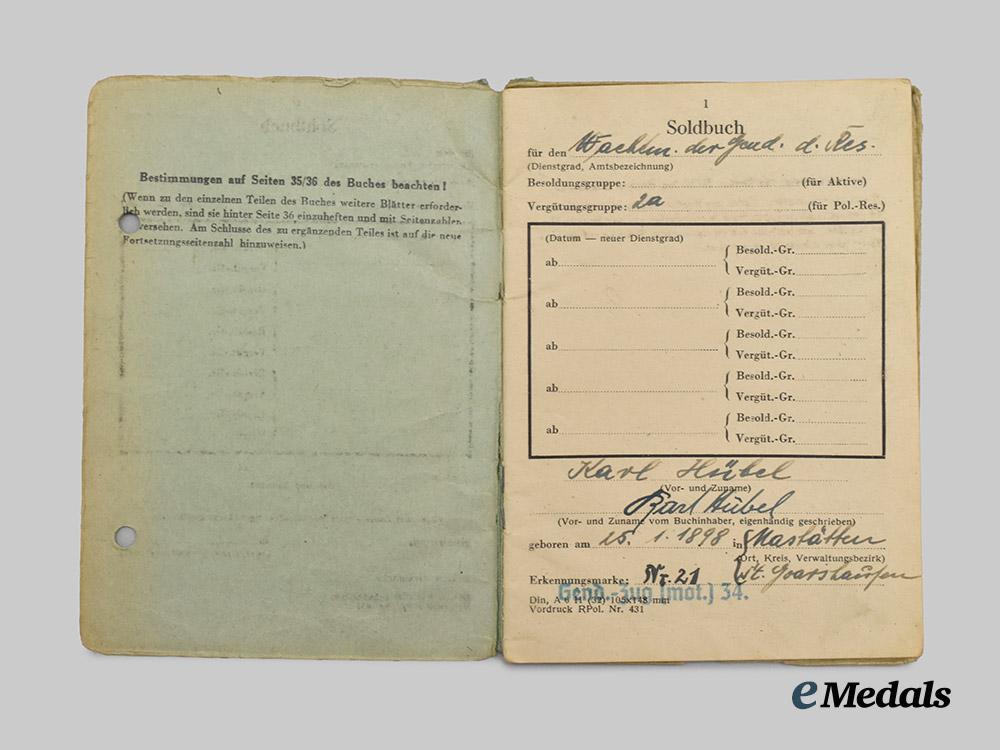 Bestimmungen auf Seiten 35/36 des Buches beachten!
(Wenn zu den einzelnen Teilen des Buches weitere Blätter erforder-
lich werden, sind sie hinter Seite 36 einzuheften und mit Seitenzahlen
versehen. Am Schlusse des zu ergänzenden Teiles ist auf die neue
Fortsetzungsseitenzahl hinzuweisen.)
1
Soldbuch
für den Wachtm. der Gend. d. Res.
(Dienstgrad, Amtsbezeichnung)
Besoldungsgruppe: (für Aktive)
Vergütungsgruppe: 2a (für Pol.-Res.)
(Datum — neuer Dienstgrad)
ab { Besold.-Gr.
Vergüt.-Gr.
ab { Besold.-Gr.
Vergüt.-Gr.
ab { Besold.-Gr.
Vergüt.-Gr.
ab { Besold.-Gr.
Vergüt.-Gr.
ab { Besold.-Gr.
Vergüt.-Gr.
Karl Hübel
(Vor- und Zuname)
Karl Hübel
(Vor- und Zuname vom Buchinhaber, eigenhändig geschrieben)
geboren am 15. 1. 1898 in { Nastätten
(Ort, Kreis, Verwaltungsbezirk)
St. Goarshausen
Erkennungsmarke: Nr. 21
Gend.-Zug (mot.) 34.
Din, A 6 H (32) 105x148 mm
Vordruck RPol. Nr. 431
eMedals